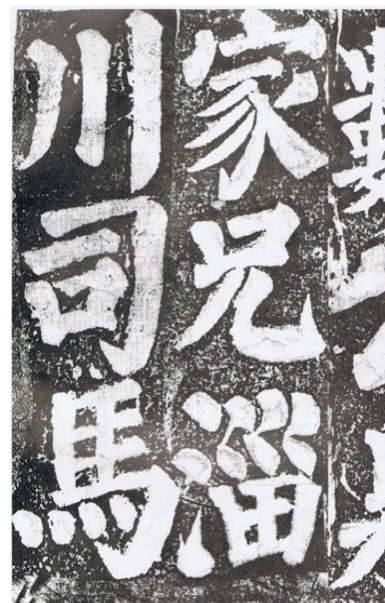 家兄淄
川司馬